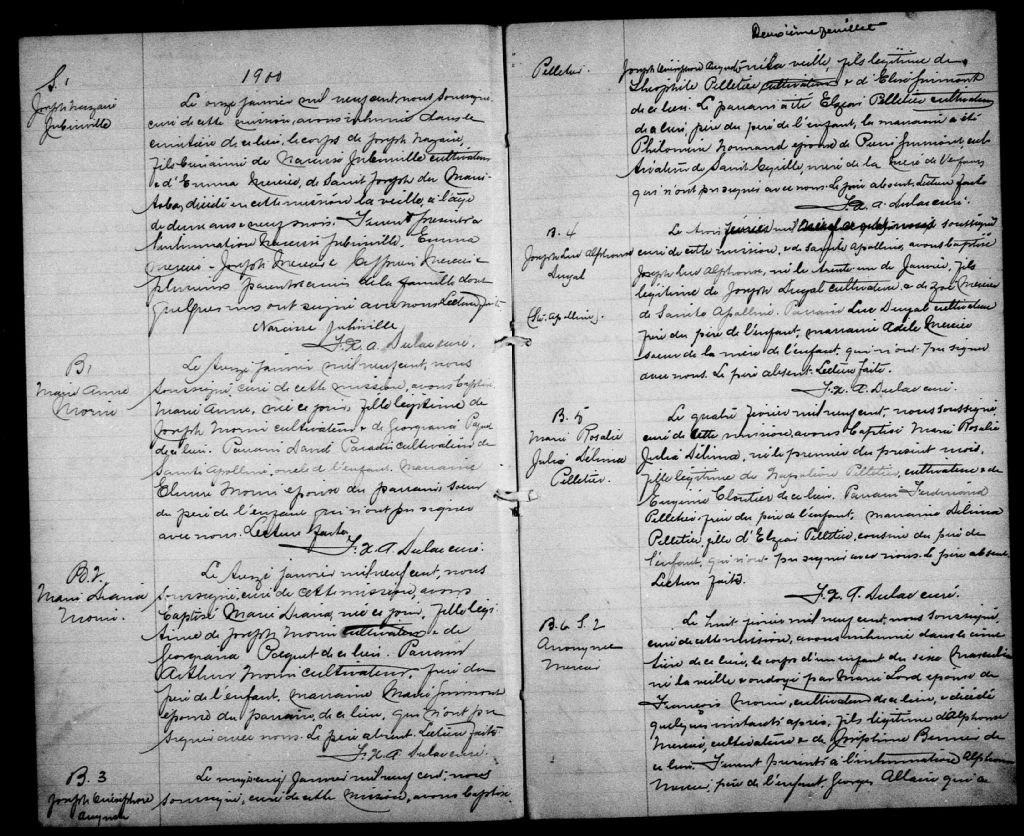 1900
S. 1
Joseph Nazaire
Jubinville
Le onze janvier mil neuf cent, nous soussigné
curé de cette mission, avons inhumé dans le
cimetière de ce lieu, le corps de Joseph Nazaire,
fils de Narcisse Jubinville cultivateur
& d'Emma Mercier, de Saint Joseph de
décédé en cette mission la veille, à l'âge
de deux ans & neuf mois. Furent présents à
l'inhumation Narcisse Jubinville, Emma
Mercier, Joseph Mercier & Mercier &
plusieurs parents & amis de la famille dont
quelques uns ont signé avec nous. Lecture faite
Narcisse Jubinville
F. X. A. Dulac curé.
B. 1
Marie Anne
Morin
Le janvier mil neuf cent, nous
soussigné, curé de cette mission, avons baptisé
Marie Anne, née ce jour, fille légitime de
Joseph Morin cultivateur & de Georgiana Paquet
de ce lieu. Parrain David Paradis cultivateur de
Sainte Apolline, oncle de l'enfant. Marraine
Morin épouse du parrain, sœur
du père de l'enfant qui n'ont pu signer
avec nous. Lecture faite.
F. X. A. Dulac curé.
B. 2
Marie Diana
Morin.
Le janvier mil neuf cent, nous
soussigné, curé de cette mission, avons
baptisé Marie Diana, née ce jour, fille légi-
time de Joseph Morin cultivateur & de
Georgiana Paquet de ce lieu. Parrain
Arthur Morin cultivateur, frère du
père de l'enfant, marraine Marie
épouse du parrain, de ce lieu, qui n'ont pu
signer avec nous. Le père absent. Lecture faite
F. X. A. Dulac curé.
B. 3
Joseph Onésiphore
Auguste
Le janvier mil neuf cent, nous
soussigné, curé de cette mission, avons baptisé
Deuxième feuillet
Pelletier.
Joseph Onésiphore Auguste né la veille, fils légitime de
Théophile Pelletier cultivateur & d'
de ce lieu. Le parrain a été Elzéar Pelletier cultivateur
de ce lieu, père du père de l'enfant, la marraine a été
Philomène Normand épouse de Pierre culti-
vateur de Saint Cyrille, mère de la mère de l'enfant
qui n'ont pu signer avec nous. Le père absent. Lecture faite
F. X. A. Dulac curé.
B. 4
Joseph Luc Alphonse
Dugal
(Ste. Apolline).
Le trois février mil neuf cent nous soussigné
curé de cette mission, & de Sainte Apolline, avons baptisé
Joseph Luc Alphonse, né le trente-un de Janvier, fils
légitime de Joseph Dugal cultivateur, & de Zoé Mercier
de Sainte Apolline. Parrain Luc Dugal cultivateur
père du père de l'enfant, marraine Adèle Mercier
sœur de la mère de l'enfant, qui n'ont pu signer
avec nous. Le père absent. Lecture faite.
F. X. A. Dulac curé.
B. 5
Marie Rosalie
Julia Délima
Pelletier.
Le quatre février mil neuf cent, nous soussigné,
curé de cette mission, avons baptisé Marie Rosalie
Julia Délima, née le premier du présent mois,
fille légitime de Napoléon Pelletier, cultivateur & de
Eugénie Cloutier de ce lieu. Parrain Ferdinand
Pelletier frère du père de l'enfant, marraine Délima
Pelletier fille d'Elzéar Pelletier, cousine du père de
l'enfant, qui n'ont pu signer avec nous. Le père absent.
Lecture faite.
F. X. A. Dulac curé.
B. 6 S. 2
Anonyme
Mercier
Le huit février mil neuf cent, nous soussigné,
curé de cette mission, avons inhumé dans le cime-
tière de ce lieu, le corps d'un enfant du sexe masculin
né la veille & ondoyé par Marie Lord épouse de
François Morin, cultivateur de ce lieu, & décédé
quelques instants après, fils légitime d'Alphonse
Mercier, cultivateur & de Joséphine Bernier de
ce lieu. Furent présents à l'inhumation Alphonse
Mercier, père de l'enfant, Georges Allaire qui a